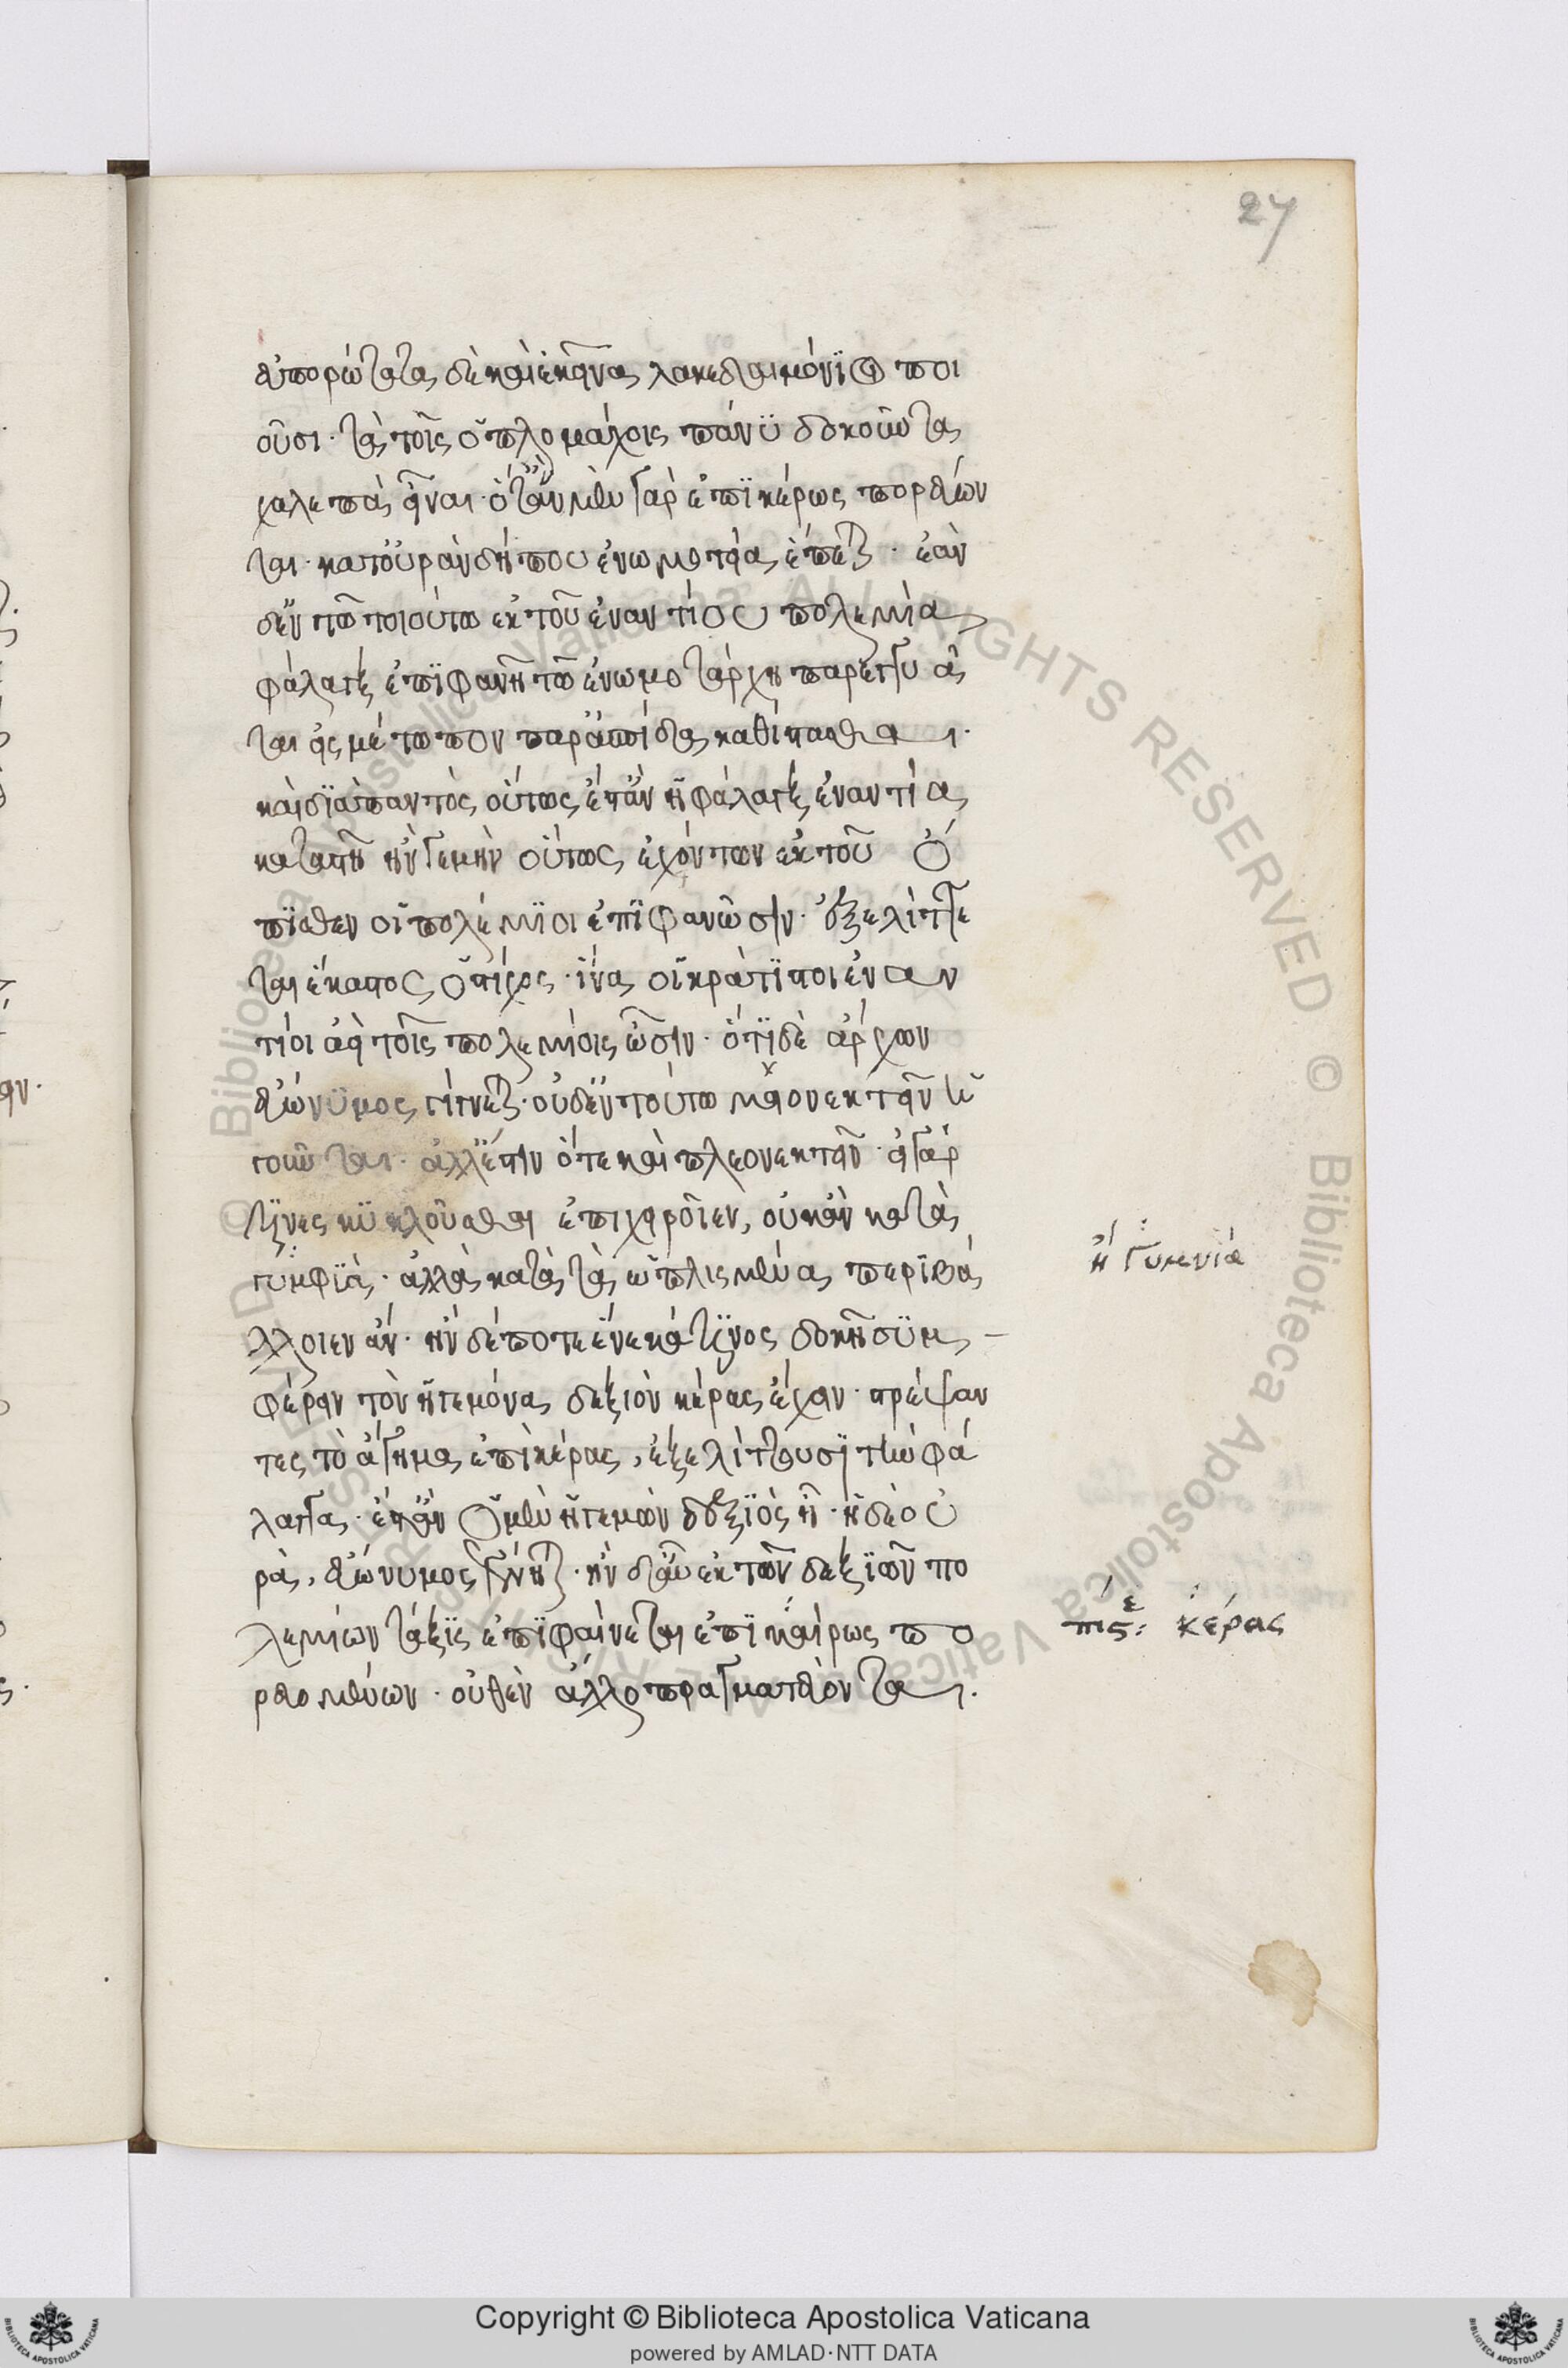 27
εὐπορώτατα δὲ καὶ ἐκεῖνα λακεδαιμόνιοι ποι
οῦσι· τὰ τοῖς ὁπλομάχοις πάνυ δοκοῦντα
χαλεπὰ εἶναι· ὅταν μὲν γὰρ ἐπὶ κέρως πορεύων
ται· κατ οὐρὰν δήπου ἐνωμοτία ἕπεται· ἐὰν
δ ἐν τῶ τοιούτω ἐκ τοῦ ἐναντίου πολεμία
φάλαγξ ἐπιφανῆ τῶ ἐνωμοτάρχη παρεγγυᾶ
ται εἰς μέτωπον παρ ἀσπίδα καθίστασθαι·
καὶ διαπαντὸς οὕτως ἔστ ἂν ἡ φάλαγξ ἐναντία
καταστῆ ἤν γε μὴν οὕτως ἐχόντων ἐκ τοῦ ὄ
πισθεν οἱ πολέμιοι ἐπιφανῶσιν· ἐξελίττε
ται ἕκαστος ὁ στίχος· ἵνα οἱ κράτιστοι ἐναν
τίοι ἀεὶ τοῖς πολεμίοις ὦσιν· ὅτι δὲ ἄρχων
εὐώνυμος γίγνεται· οὐδ ἐν τούτω μειονεκτεῖν ἡ
γοῦνται· ἀλλ ἔστιν ὅτε καὶ πλεονεκτεῖν· εἰ γάρ
τινες κυκλοῦσθαι ἐπιχειροῖεν, οὐκ ἂν κατὰ
γυμφιὰ· ἀλλὰ κατὰ τὰ ὡπλισμένα περιβά
λλοιεν ἄν· ἢν δέ ποτε ἕνεκά τινος δοκῆ συμ
φέρειν τὸν ἡγεμόνα δεξιὸν κέρας ἔχειν· στρέψαν
τες τὸ ἄγημα ἐπὶ κέρας, ἐξελίττουσι τὴν φά
λαγγα· ἔστ ἂν ὁ μὲν ἡγεμὼν δεξιὸς ἦ· ἡ δὲ οὐ
ρὰ, εὐώνυμος γένηται· ἢν δ αὖ ἐκ τῶν δεξιῶν πο
λεμίων τάξις ἐπιφαίνεται ἐπὶ καίρως πο
ρευομένων· οὐθὲν ἄλλο πραγματεύονται.
ἢ γυμνία
κέρας
Copyright © Biblioteca Apostolica Vaticana
powered by AMLAD·NTT DATA